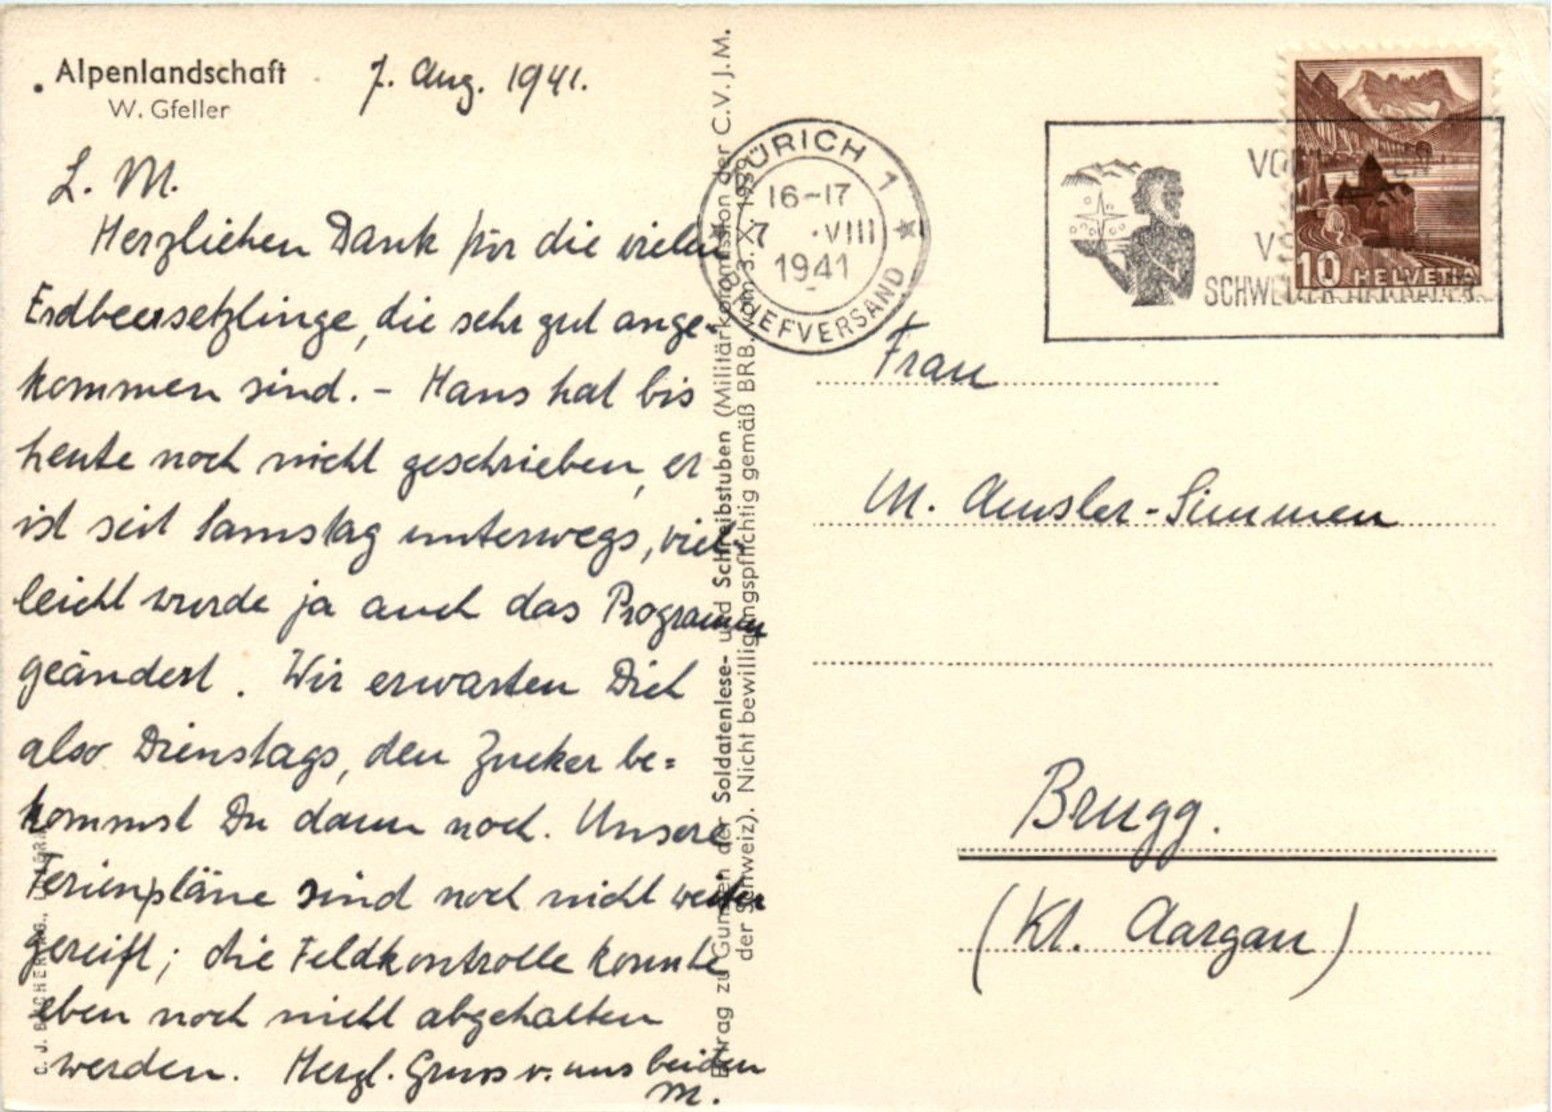 Alpenlandschaft
W. Gfeller
7. Aug. 1941.
L. M.
Herzlichen Dank für die vielen
Erdbeersetzlinge, die sehr gut ange-
kommen sind. - Hans hat bis
heute noch nicht geschrieben, er
ist seit Samstag unterwegs, viel-
leicht wurde ja auch das Programm
geändert. Wir erwarten Dich
also Dienstags, den Zucker be=
kommst Du dann noch. Unsere
Ferienpläne sind noch nicht weiter
gereift; die Feldkontrolle konnte
eben noch nicht abgehalten
werden. Herzl. Gruss v. uns beiden
M.
Ertrag zu Gunsten der Soldatenlese- und Schreibstuben (Militärkommission der C.V.J.M.
der Schweiz). Nicht bewilligungspflichtig gemäß BRB. vom 3. X. 1939.
C. J. BUCHER AG., LUZERN
ZÜRICH 1
16-17
7 ·VIII
1941
BRIEFVERSAND
SCHWEIZER
10 HELVETIA
Frau
M. Amsler-Simmen
Brugg.
(Kt. Aargau)